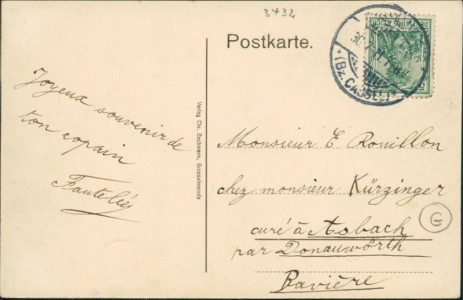 3432
Postkarte.
(Bz. CASSEL)
Joyeux souvenir de
ton copain
Verlag Chr. Bachmann, Grossalmerode
Monsieur E. Rouillon
chez monsieur Kürzinger
curé à Asbach
par Donauwörth
Bavière
G